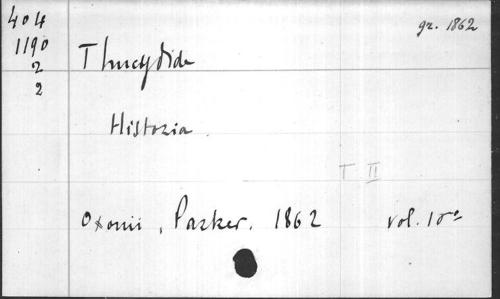 404
1190
2
2
gr. 1862
Thucydide
Historia.
T II
Oxonii, Parker. 1862 vol. 10°